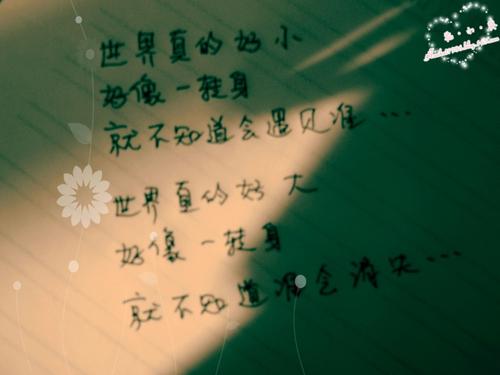 世界真的好小
好像一转身
就不知道会遇见谁…
世界真的好大
好像一转身
就不知道谁会消失…